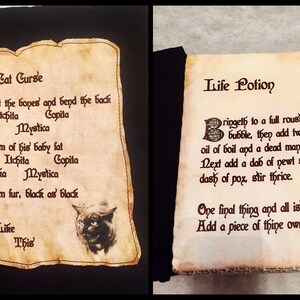 Cat Curse
t the bones and bend the back
Itchita Copita
Mystica
m of his baby fat
Itchita Copita
Mystica
n fur, black as black
Like
This
Life Potion
Bringeth to a full rous
bubble, then add tw
oil of boil and a dead man
Next add a dab of newt
dash of pox, stir thrice.
One final thing and all is
Add a piece of thine own